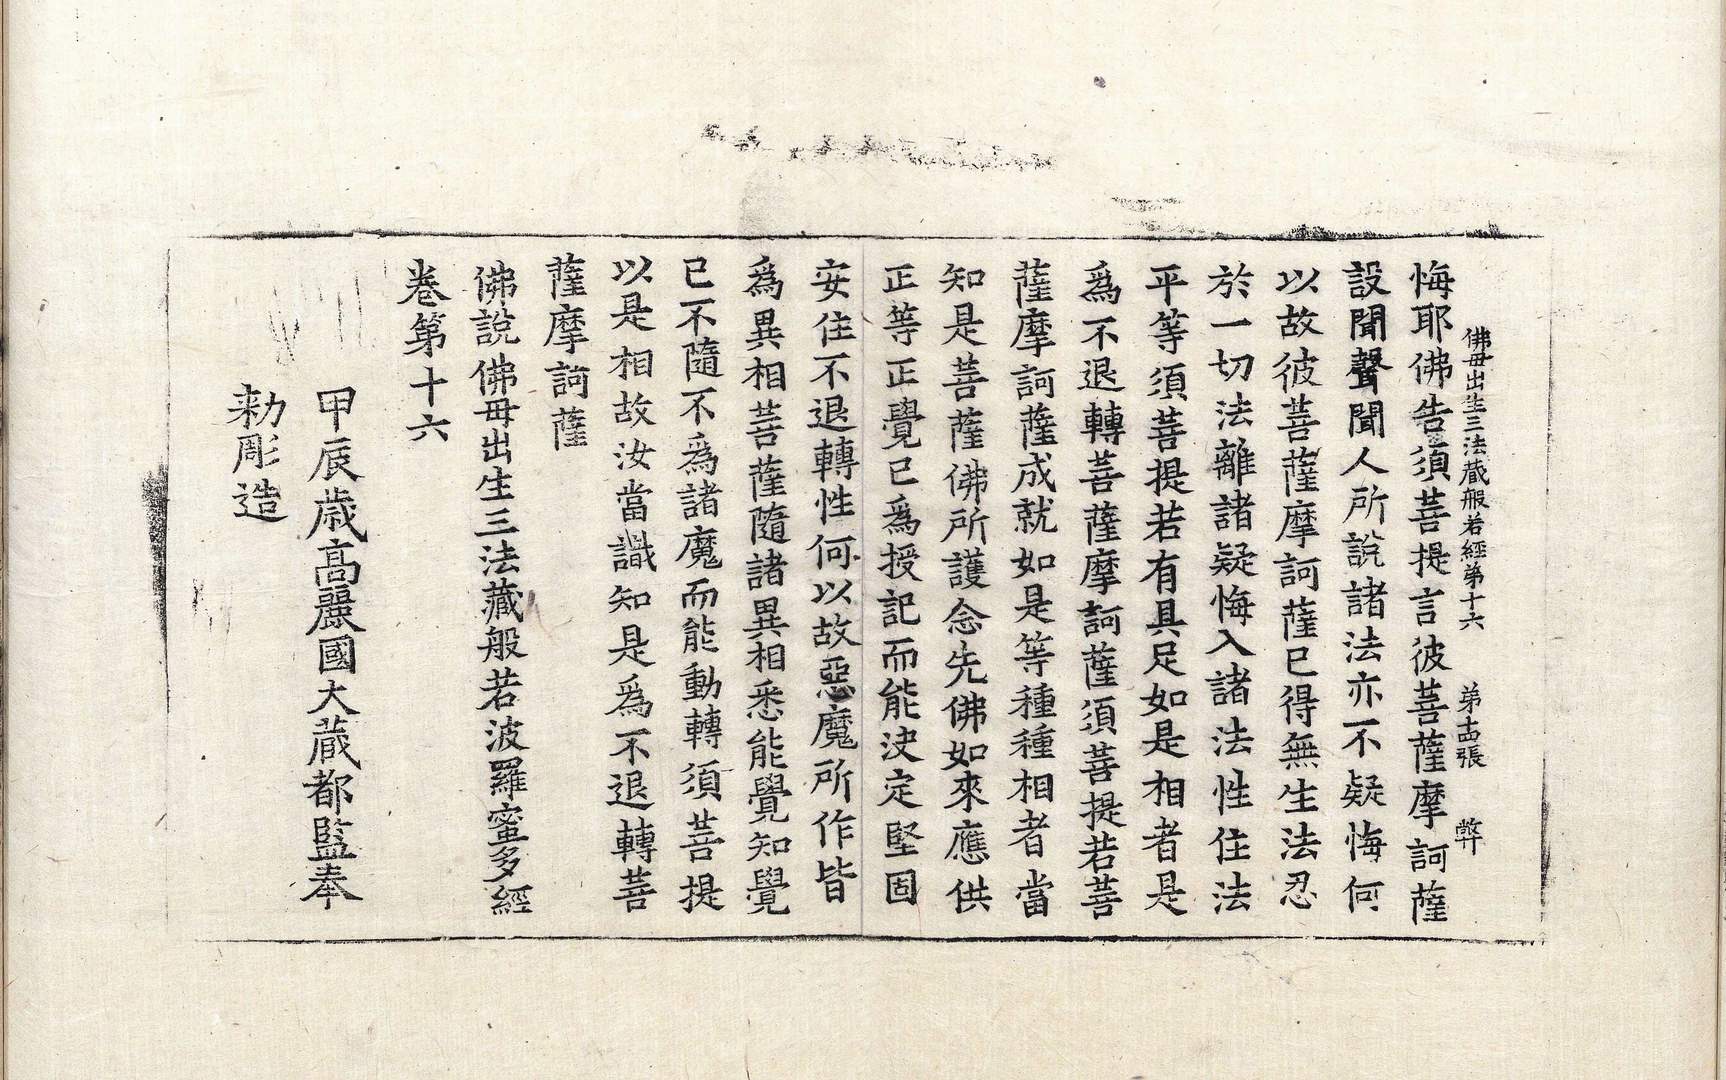 佛母出生三法蔵般若經第十六 第十四張 弊
悔耶佛告須菩提言彼菩薩摩訶薩
設聞聲聞人所說諸法亦不疑悔何
以故彼菩薩摩訶薩已得無生法忍
於一切法離諸疑悔入諸法性住法
平等須菩提若有具足如是相者是
爲不退轉菩薩摩訶薩須菩提若菩
薩摩訶薩成就如是等種種相者當
知是菩薩佛所護念先佛如來應供
正等正覺已爲授記而能決定堅固
安住不退轉性何以故惡魔所作皆
爲異相菩薩隨諸異相悉能覺知覺
已不隨不爲諸魔而能動轉須菩提
以是相故汝當識知是爲不退轉菩
薩摩訶薩
佛說佛母出生三法藏般若波羅蜜多經
卷第十六
甲辰歲高麗國大藏都監奉
勑彫造